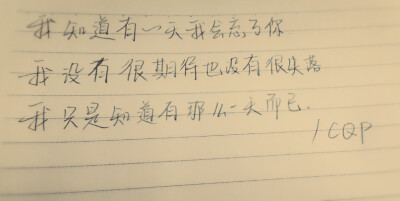 我知道有一天我会忘了你
我没有很期待也没有很失落
我只是知道有那么一天而已.
/CQP